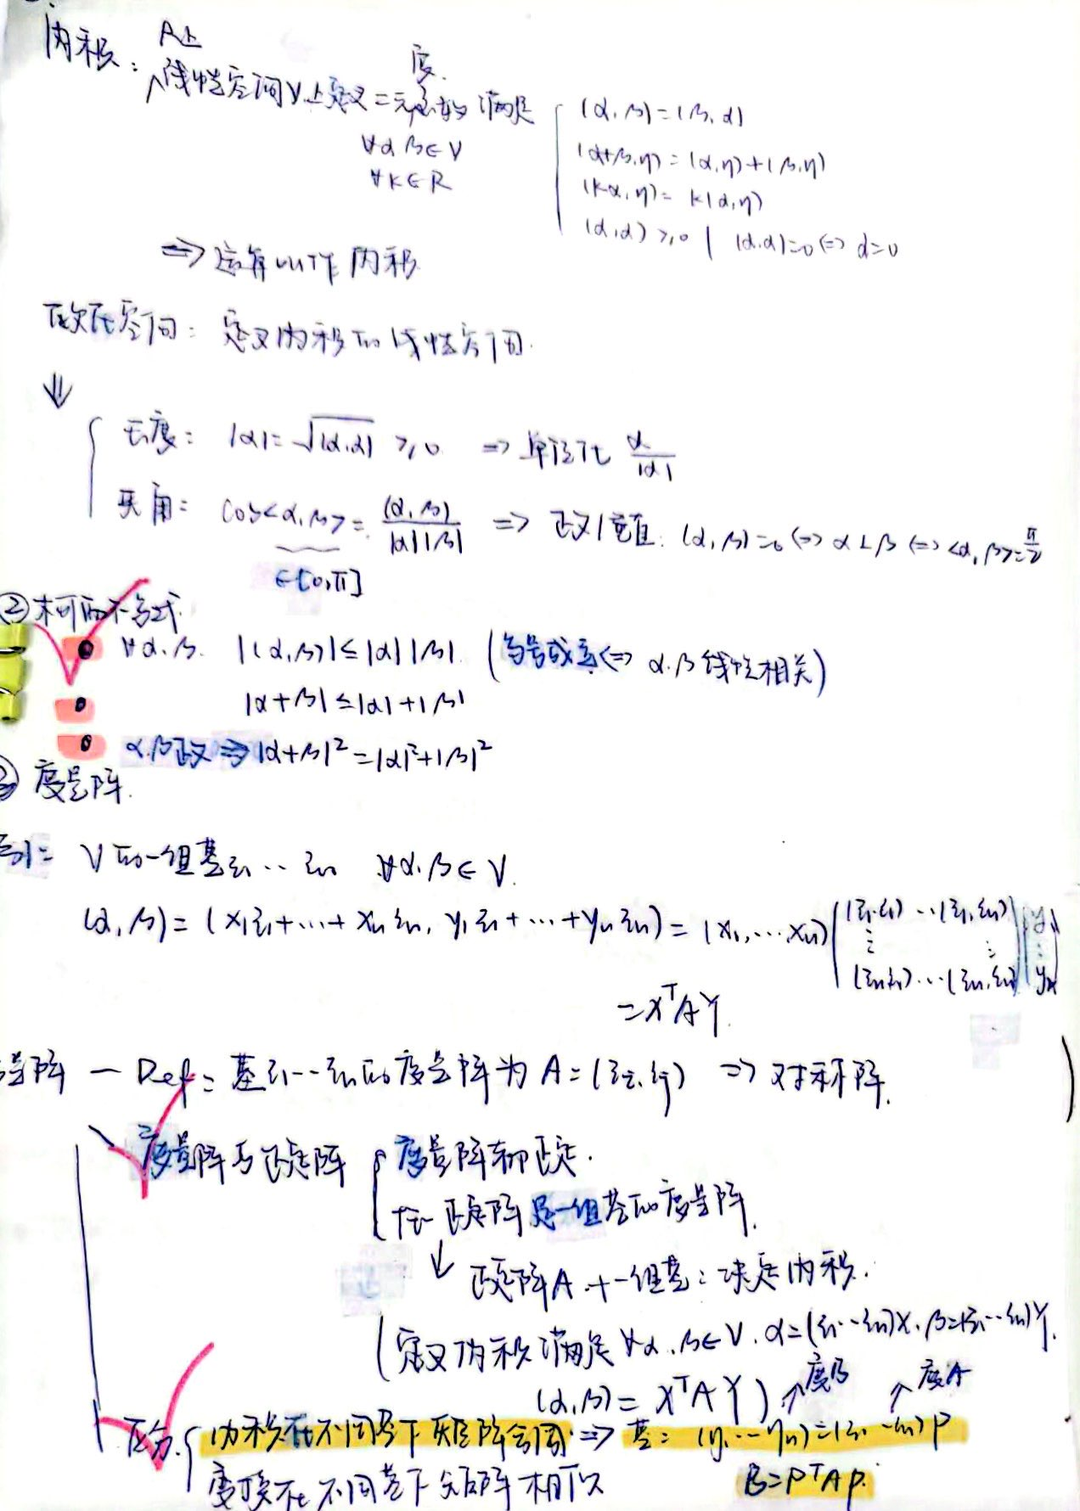 内积：R上线性空间V上定义二元实函数 满足
∀α β∈V
∀k∈R
(α,β)=(β,α)
(α+β,η)=(α,η)+(β,η)
(kα,η)=k(α,η)
(α,α)≥0 | (α,α)=0⇔α=0
⇒运算叫作内积
欧氏空间：定义内积的线性空间.
⇓
长度：|α|=√(α,α) ≥0 ⇒单位化 α/|α|
夹角：cos<α,β>=(α,β)/|α||β| ⇒正交/垂直：(α,β)=0⇔α⊥β⇔<α,β>=π/2
∈[0,π]
②柯西不等式
∀α.β. |(α,β)|≤|α||β|. (等号成立⇔α.β线性相关)
|α+β|≤|α|+|β|
α.β正交⇒|α+β|²=|α|²+|β|²
度量阵.
V的一组基ξ₁…ξₙ ∀α.β∈V.
(α,β)=(x₁ξ₁+…+xₙξₙ, y₁ξ₁+…+yₙξₙ)=(x₁,…xₙ)((ξ₁,ξ₁)…(ξ₁,ξₙ) ⋮ ⋮ (ξₙ,ξ₁)…(ξₙ,ξₙ))(y₁ ⋮ yₙ)
=XᵀAY.
量阵 — Def：基ξ₁…ξₙ的度量阵为A=(ξᵢ,ξⱼ) ⇒对称阵.
度量阵与正定阵
度量阵都正定.
任一正定阵是一组基的度量阵.
↓ 正定阵A.+一组基：决定内积.
(定义内积满足∀α.β∈V.α=(ξ₁…ξₙ)X.β=(ξ₁…ξₙ)Y.
(α,β)=XᵀAY) ↑度B ↑度A
区分.
内积在不同基下矩阵合同⇒基：(η₁…ηₙ)=(ξ₁…ξₙ)P
变换在不同基下矩阵相似
B=PᵀAP.